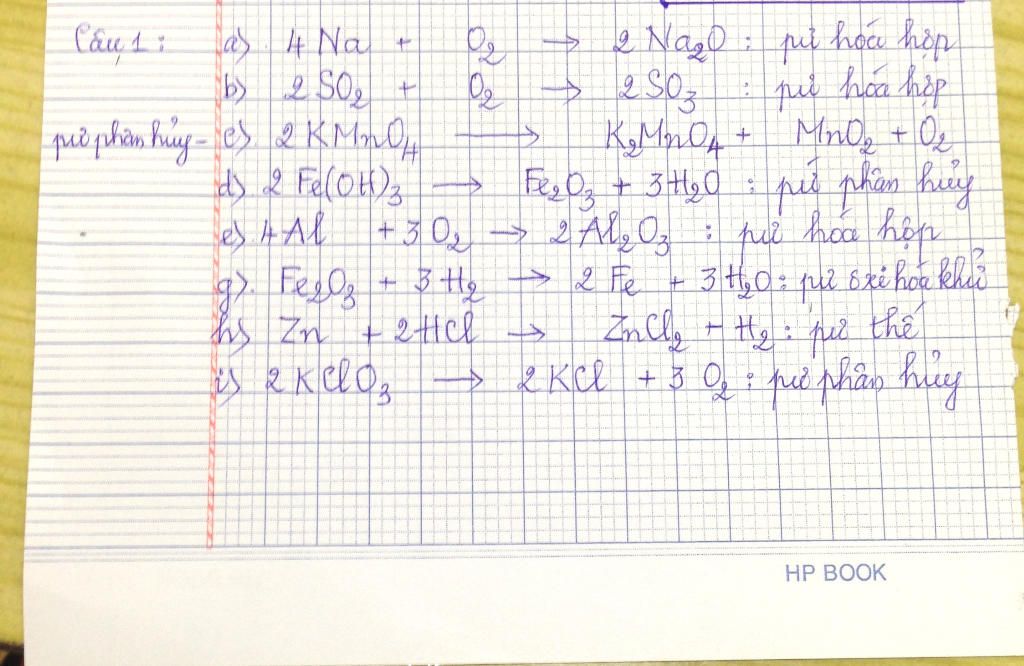 Câu 1: a) 4 Na + O₂ → 2 Na₂O : pứ hóá hợp
b) 2SO₂ + O₂ → 2SO₃ : pứ hóá hợp
pứ phân hủy - c) 2KMnO₄ → K₂MnO₄ + MnO₂ + O₂
d) 2 Fe(OH)₃ → Fe₂O₃ + 3H₂O : pứ phân hủy
e) 4Al + 3O₂ → 2Al₂O₃ : pứ hóá hợp
g) Fe₂O₃ + 3H₂ → 2 Fe + 3H₂O : pứ ôxi hóá khử
h) Zn + 2HCl → ZnCl₂ + H₂ : pứ thế
i) 2KClO₃ → 2KCl + 3 O₂ : pứ phân hủy
HP BOOK